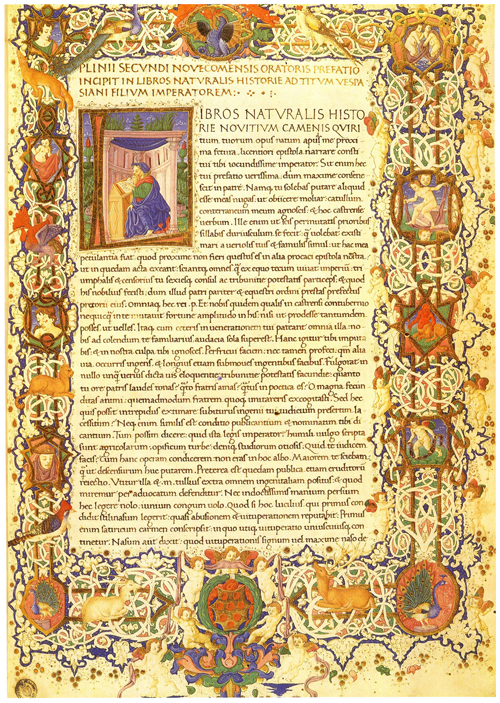 PLINII SECVNDI NOVECOMENSIS ORATORIS PREFATIO
INCIPIT IN LIBROS NATVRALIS HISTORIE AD TITVM VESPA
SIANI FILIVM IMPERATOREM
IBROS NATVRALIS HISTO
RIE NOVITIVM CAMENIS QVIRI
tium tuorum opus natum apud me proxi
ma fetura licentiori epistola narrare consti
tui tibi iocundissime imperator. Sit enim hec
tui prefatio verissima. dum maximo consene
scit in patre. Namq; tu solebas putare aliquid
esse meas nugas ut obiicere moliar catullum
conterraneum meum agnoscis & hoc castrense
uerbum. Ille enim ut scis permutatis prioribus
sillabis duriusculum se fecit q uolebat existi
mari a ueroliis tuis & famulis simul ut hac mea
petulantia fiat quod proxime non fieri questus es in alia procaci epistola nostra.
ut in quedam acta exeant. sciantq; omnes q ex equo tecum uiuat imperium tri
umphalis & censorius tu sexiesq; consul ac tribunitie potestatis particeps & quod
his nobilius fecisti dum illud patri pariter & equestri ordini prestas prefectus
pretorii eius. Omniaq; hec rei .p. Et nobis quidem qualis in castrensi contubernio
nequicq in te mutauit fortune amplitudo in his nisi ut prodesse tantundem
posses ut uelles. Itaq; cum ceteris in uenerationem tui pateant omnia illa no
bis ad colendum te familiarius audacia sola superest. Hanc igitur tibi imputa
bis & in nostra culpa tibi ignosces. Perfricui faciem: nec tamen profeci. qm alia
uia occurris ingens & longius etiam submoues ingentibus facibus. Fulgorat in
nullo unq uerius dicta uis eloquentie tribunitie potestatis facundie. quanto
tu ore patris laudes tonas? qto fratris amas? qtus in poetica es? O magna fecun
ditas animi: quemadmodum fratrem quoq; imitareris excogitasti. Sed hec
quis possit intrepidus existimare subiturus ingenii tui iudicium presertim la
cessitum? Neq; enim similis est conditio publicantium & nominatim tibi di
cantium. Tum possim dicere: quid ista legis imperator? humili uulgo scripta
sunt agricolarum opificum turbe: deniq; studiorum otiosis. Quid te iudicem
facis? Cum hanc operam condicerem non eras in hoc albo. Maiorem te sciebam
q ut descensurum huc putarem. Preterea est quedam publica etiam eruditorum
reiectio. Vtitur illa & .m. tullius extra omnem ingenii aleam positus & quod
miremur per aduocatum defenditur. Nec indoctissimis manium persium
hec legere nolo. iunium congum uolo. Quod si hoc lucilius qui primus con
didit stili nasum
enim satiricum carmen conscripsit in quo utiq; uituperatio uniuscuiusq; con
tinetur. Nasum aut dixit quod uituperationis signum uel maxime naso de